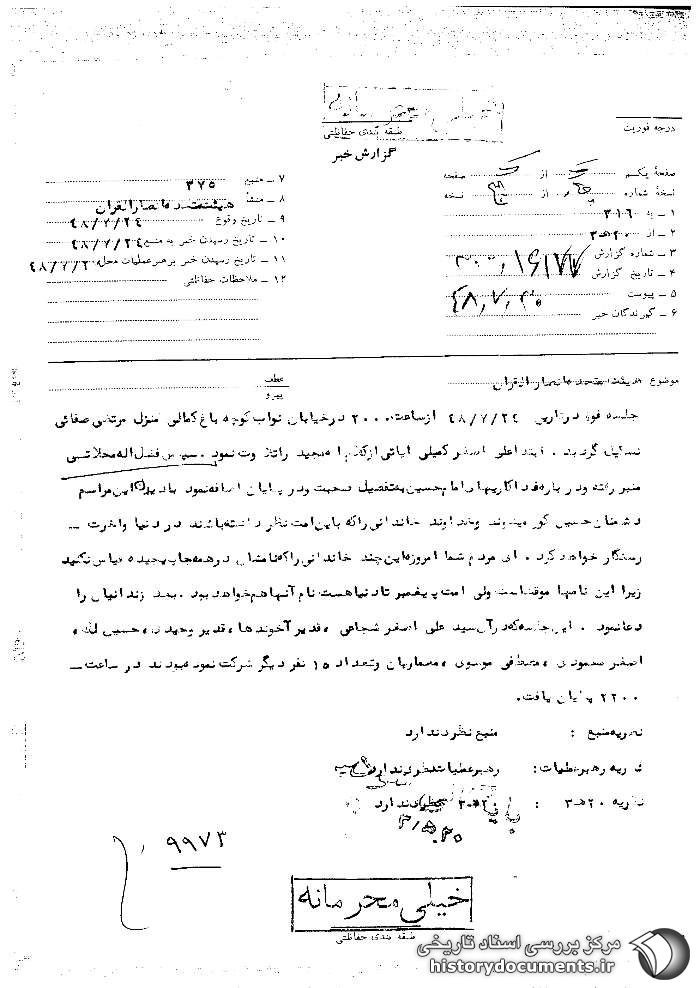 خیلی محرمانه
طبقه بندی حفاظتی
گزارش خبر
درجه فوریت
صفحهٔ یکم از صفحه
نسخهٔ شماره از نسخه
۱ ـ به ۳۱۶
۲ ـ از ۲۰ه۳
۳ ـ شماره گزارش
۴ ـ تاریخ گزارش
۵ ـ پیوست
۶ ـ گیرندگان خبر
۷ ـ منبع ۳۷۵
۸ ـ منشأ هیئت متحده انصارالقران
۹ ـ تاریخ وقوع ۴۸/۷/۲۴
۱۰ ـ تاریخ رسیدن خبر به منبع ۴۸/۷/۲۴
۱۱ ـ تاریخ رسیدن خبر برهبرعملیات محل
۱۲ ـ ملاحظات حفاظتی
موضوع هیئت متحده انصارالقران
عطف
پیرو
جلسه فوق درتاریخ ۴۸/۷/۲۴ ازساعت ۲۰۰۰ درخیابان نواب کوچه باغ کمالی منزل مرتضی صفائی
تشکیل گردید . ابتدا علی اصغر کمیلی آیاتی ازکلام اله مجید راتلاوت نمود . سپس فضل اله محلاتی
منبر رفته ودرباره فداکاریهای امام حسین به تفصیل صحبت ودر پایان اضافه نمود بادیدن این مراسم
دشمنان حسین کور میشوند وخداوند خاندانی راکه باین امت نظر داشته باشند در دنیا وآخرت ـ
رستگار خواهد کرد . ای مردم شما امروزه این چند خاندانی راکه نامشان درهمه جا پیچیده قیاس نکنید
زیرا این نامها موقت است ولی امت پیغمبر تادنیاهست نام آنها هم خواهد بود . بعد زندانیان را
دعا نمود . این جلسه که درآن سید علی اصغر شجاعی ، قدیر آخوندها ، قدیر وحیدی ، حسین لله ،
اصغر محمودی ، مصطفی موسوی ، معماریان وتعداد ۱۵ نفر دیگر شرکت نموده بودند در ساعت ـ
۲۲۰۰ پایان یافت .
نظریه منبع : منبع نظر ندارد
نظریه رهبرعملیات : رهبرعملیات نظر ندارد
نظریه ۲۰ه۳ : ۲۰ه۳ نظر ندارد
۹۹۷۳
خیلی محرمانه
طبقه بندی حفاظتی
مرکز بررسی اسناد تاریخی
historydocuments.ir